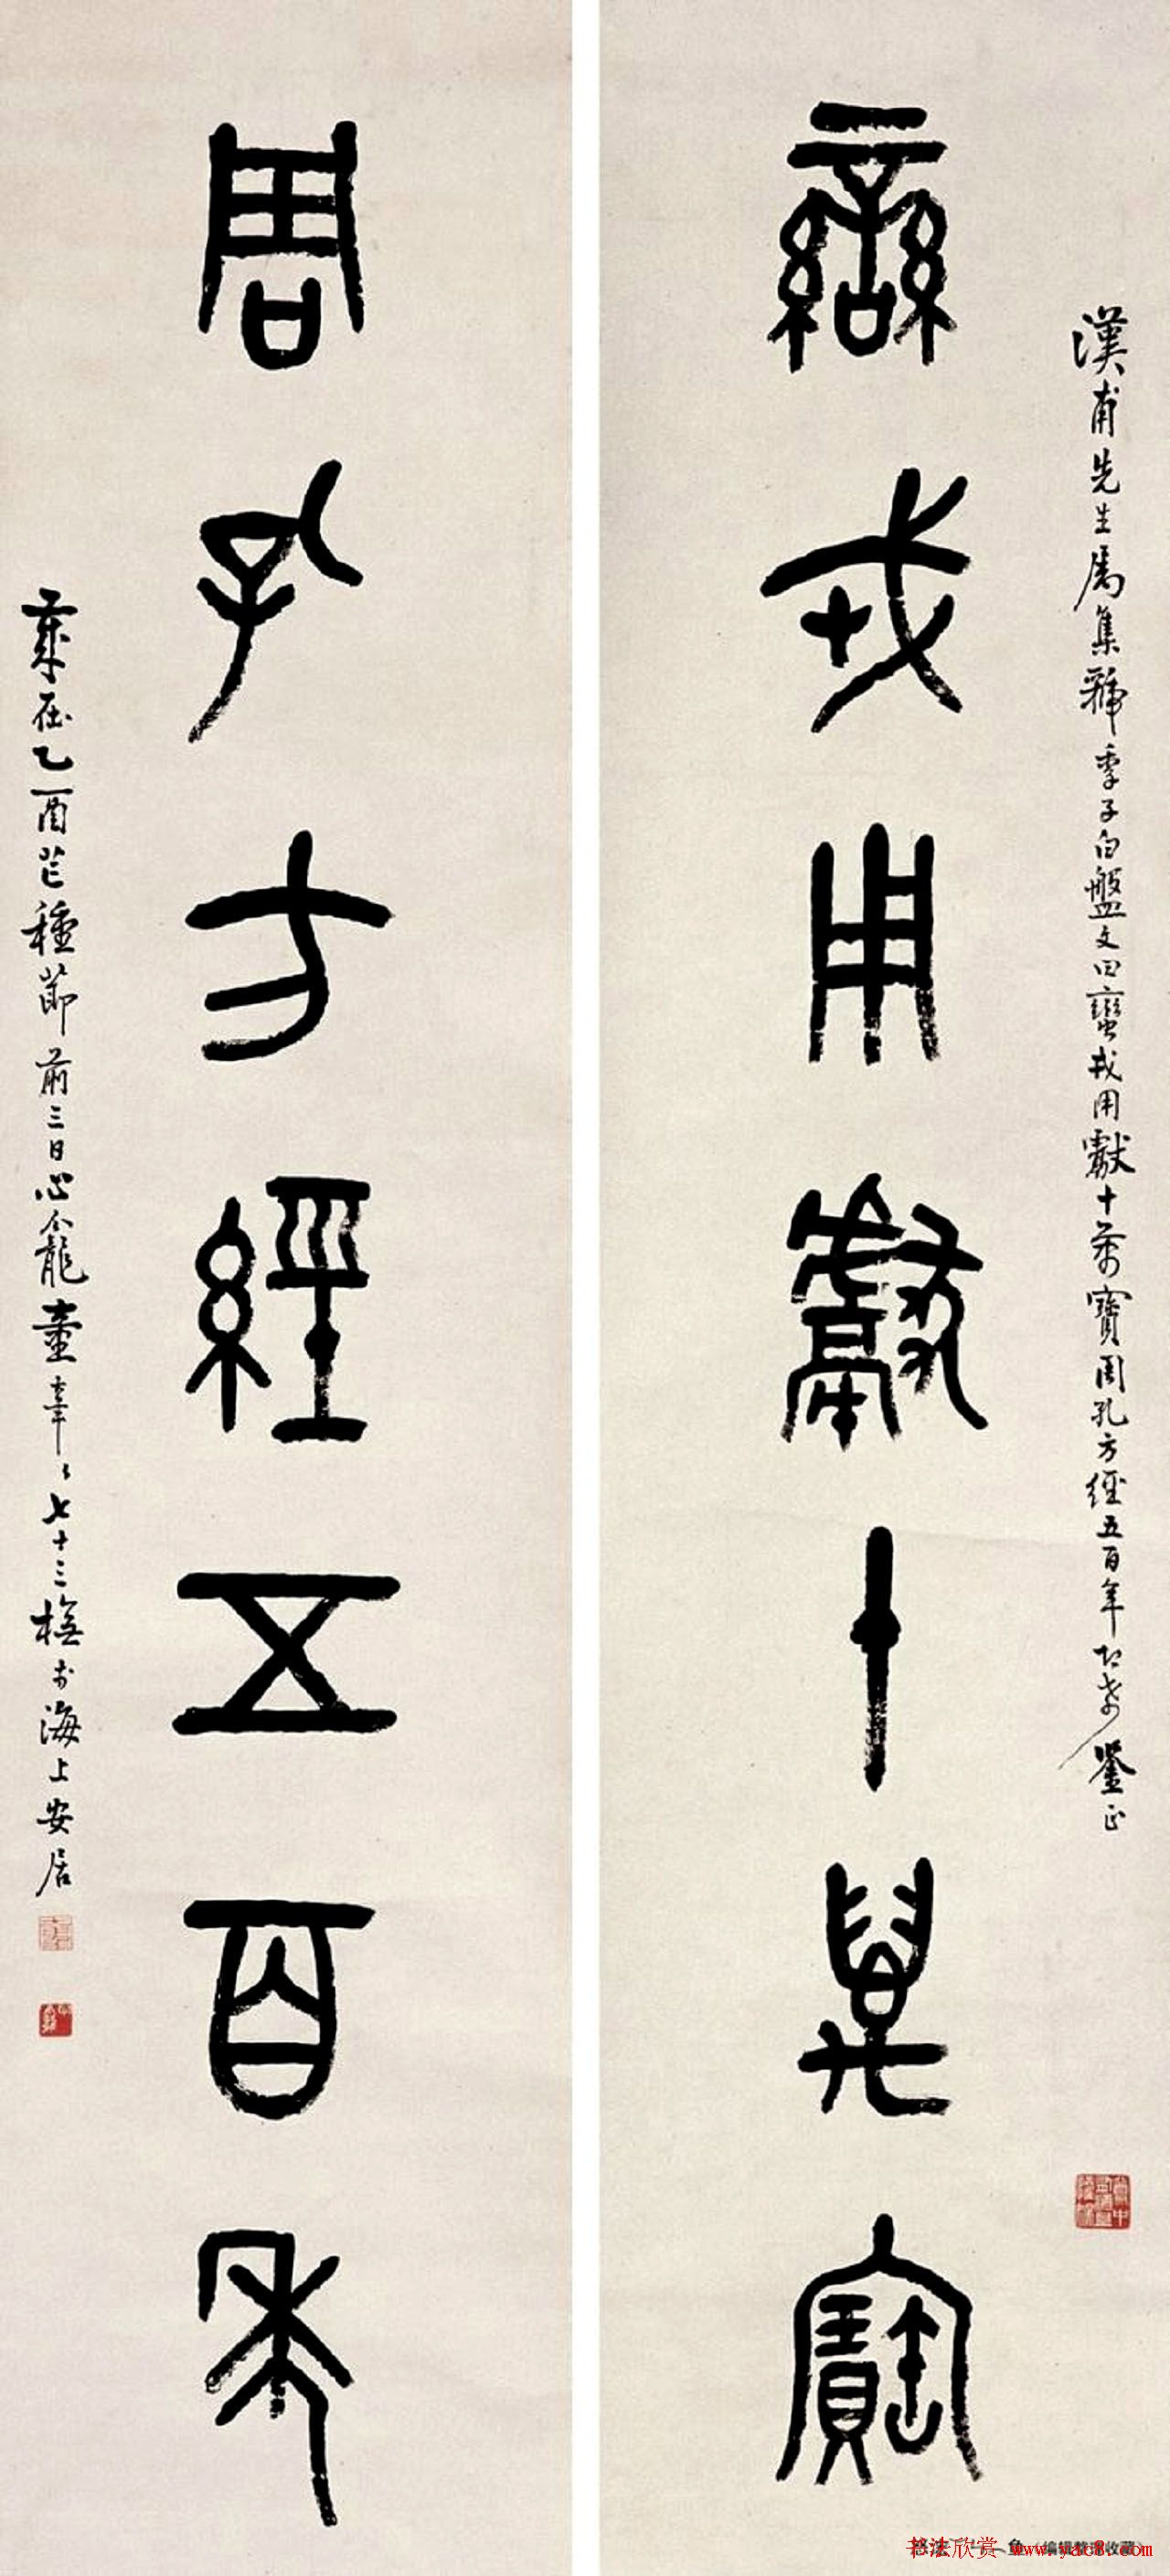 漢甫先生属集虢季子白盤文曰蠻戎用獻十萬寶周孔方經五百年即希鑒正
蠻戎用獻十萬寶
周孔方經五百年
歲在乙酉芒種節前三日心龕童章〻七十三橅於海上安居
书法欣赏 www.yac8.com